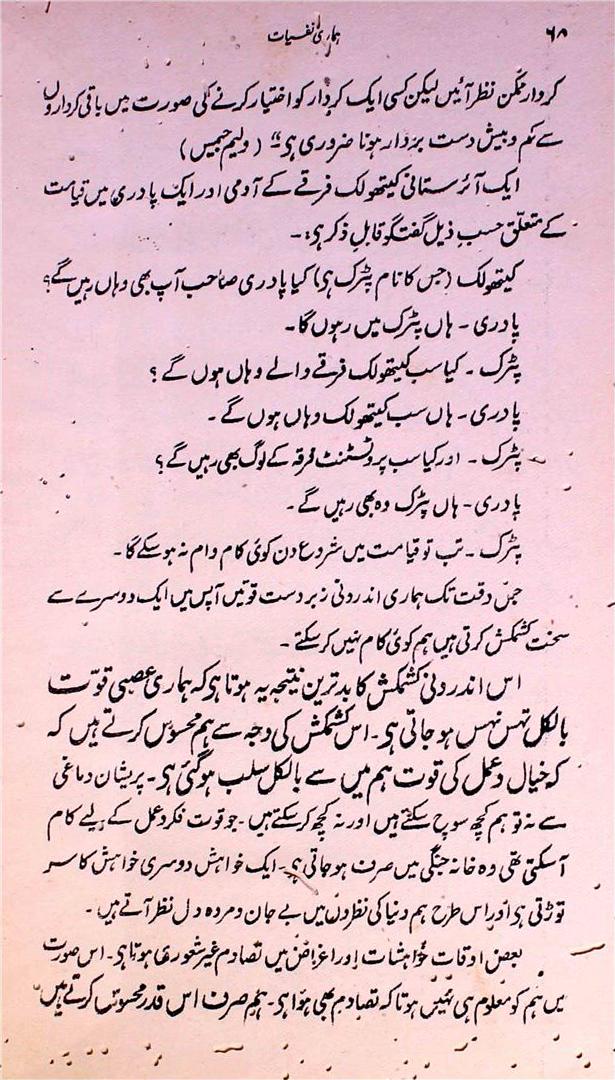 ۶۸
ہماری نفسیات
کردار ممکن نظر آئیں لیکن کسی ایک کردار کو اختیار کرنے کی صورت میں باقی کرداروں
سے کم و بیش دست بردار ہونا ضروری ہے“ (ولیم جیمس)
ایک آئرستانی کیتھولک فرقے کے آدمی اور ایک پادری میں قیامت
کے متعلق حسب ذیل گفتگو قابلِ ذکر ہے:۔
کیتھولک (جس کا نام پٹرک ہے) کیا پادری صاحب آپ بھی وہاں رہیں گے؟
پادری ۔ ہاں پٹرک میں رہوں گا۔
پٹرک ۔ کیا سب کیتھولک فرقے والے وہاں ہوں گے ؟
پادری ۔ ہاں سب کیتھولک وہاں ہوں گے ۔
پٹرک ۔ اور کیا سب پروٹسٹنٹ فرقہ کے لوگ بھی رہیں گے ؟
پادری ۔ ہاں پٹرک وہ بھی رہیں گے ۔
پٹرک ۔ تب تو قیامت میں شروع دن کوئی کام وام نہ ہو سکے گا۔
جس وقت تک ہماری اندرونی زبردست قوتیں آپس میں ایک دوسرے سے
سخت کشمکش کرتی ہیں ہم کوئی کام نہیں کرسکتے ۔
اس اندرونی کشمکش کا بدترین نتیجہ یہ ہوتا ہے کہ ہماری عصبی قوت
بالکل تہس نہس ہو جاتی ہے۔ اس کشمکش کی وجہ سے ہم محسوس کرتے ہیں کہ
کہ خیال و عمل کی قوت ہم میں سے بالکل سلب ہو گئی ہے۔ پریشان دماغی
سے نہ تو ہم کچھ سوچ سکتے ہیں اور نہ کچھ کر سکتے ہیں ۔ جو قوت فکر و عمل کے لیے کام
آ سکتی تھی وہ خانہ جنگی میں صرف ہو جاتی ہے۔ ایک خواہش دوسری خواہش کا سر
توڑتی ہے اور اس طرح ہم دنیا کی نظروں میں بے جان و مردہ دل نظر آتے ہیں ۔
بعض اوقات خواہشات اور اغراض میں تصادم غیر شعوری ہوتا ہے۔ اس صورت
میں ہم کو معلوم ہی نہیں ہوتا کہ تصادم بھی ہوا ہے۔ ہم صرف اس قدر محسوس کرتے ہیں